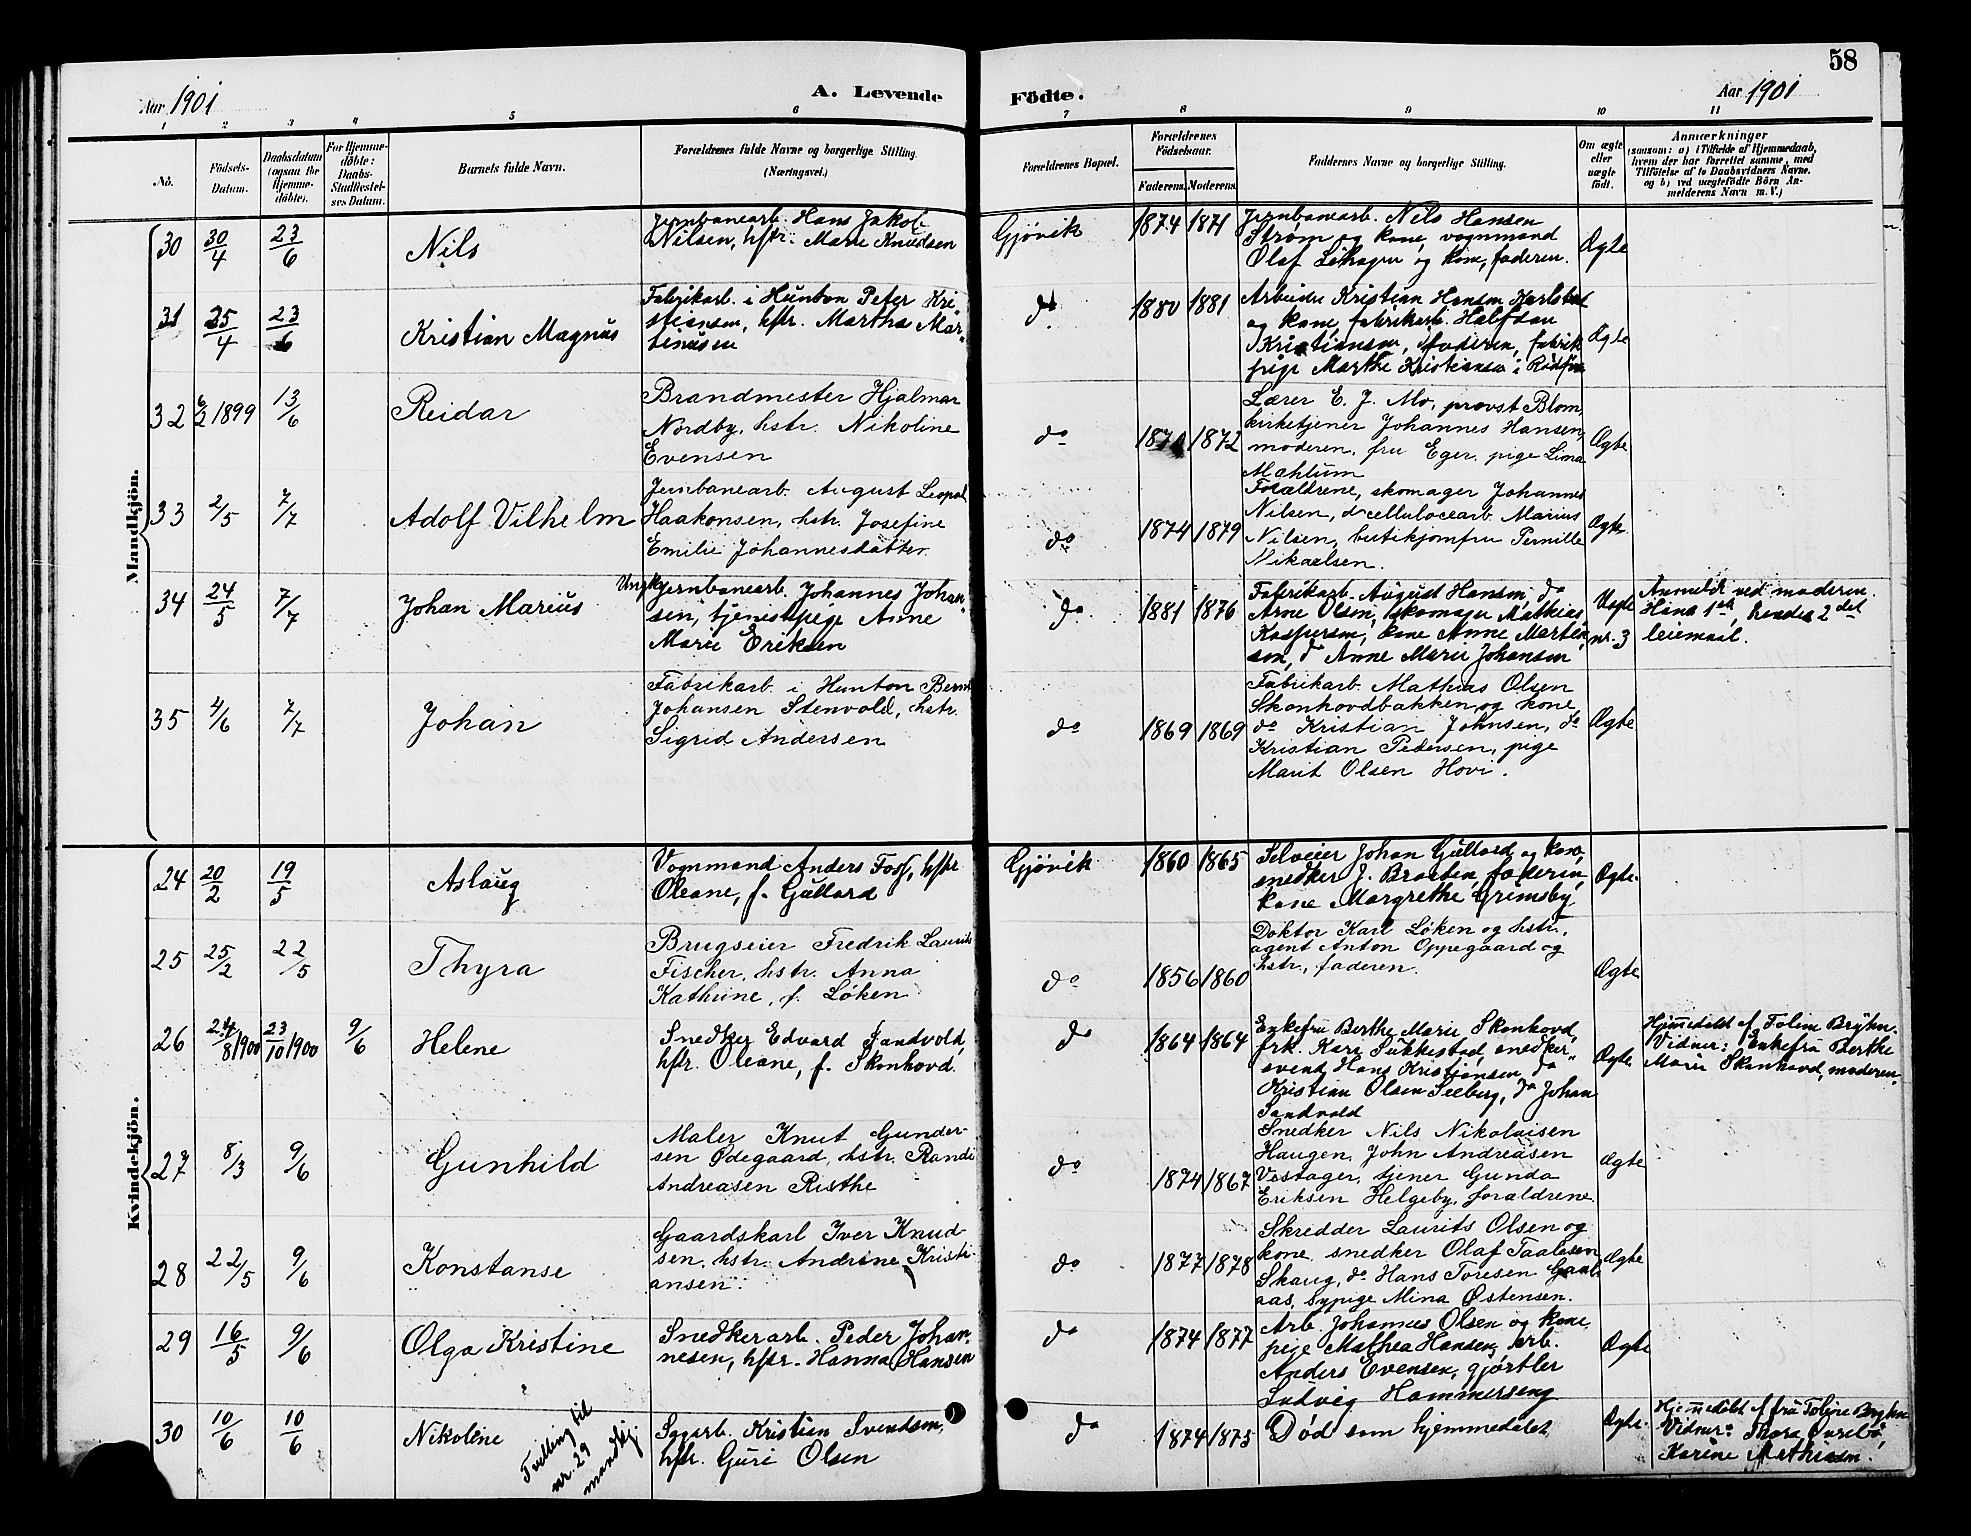 58
Aar 1901
A. Levende
Födte.
Aar 1901
1 2 3 4 5 6 7 8 9 10 11
No.
Födsels-
Datum.
Daabsdatum
(ogsaa for
Hjemme-
döbte).
For Hjemme-
döbte:
Daabs-
Stadfæstel-
ses Datum.
Barnets fulde Navn.
Forældrenes fulde Navne og borgerlige Stilling.
(Næringsvei.)
Forældrenes Bopæl.
Forældrenes
Födselsaar.
Faderens. Moderens.
Faddernes Navne og borgerlige Stilling.
Om ægte
eller
uægte
født.
Anmærkninger
(saasom: a) i Tilfælde af Hjemmedaab,
hvem der har forrettet samme, med
Tilföielse af to Daabsvidners Navne.
og b) ved uægtefödte Börn An-
melderens Navn m. V.)
Mandkjön.
30 30/4 23/6 Nils
Jernbanearb. Hans Jakob
Nilsen, hstr. Marie Knudsen
Gjövik 1874 1871
Jernbanearb. Nils Hansen
Strøm og kone, vognmand
Olaf og kone, faderen.
Ægte
31 25/4 23/6 Kristian Magnus
Fabrikarb. i Hunton Peter Kri
stiansen, hstr. Martha Mar
tinusen
do 1880 1881
Arbeider Kristian Hansen Karlstad
og kone, fabrikarb. Halfdan
Kristiansen, faderen, fabrik
pige Marthe Kristiansen i
Ægte
32 6/2 1899 13/6 Reidar
Brandmester Hjalmar
Nordby, hstr. Nikoline
Evensen
do 1872
Lærer E. J. Mo, provst Blom,
kirketjener Johannes Hansen,
moderen, fru Eger, pige Lina
Mahlum
Ægte
33 2/5 7/7 Adolf Vilhelm
Jernbanearb. August Leopol
Haakonsen, hstr. Josefine
Emilie Johannesdatter
do 1874 1879
Forældrene, skomager Johannes
Nilsen, cellulocearb. Marius
Nilsen, butikjomfru Pernille
Mikaelsen.
Ægte
34 24/5 7/7 Johan Marius
Ungk. jernbanearb. Johannes Johan
sen, tjenestpige Anne
Marie Eriksen
do 1881 1876
Fabrikarb. August Hansen, do
Arne Olsen, skomager Mathias
Kaspersen, kone Anne Martin
sen, do Anne Marie Johansen
Uægte
nr. 3
Anmeldt ved moderen.
Hans 1ste, hendes 2det
leiemaal.
35 4/6 7/7 Johan
Fabrikarb. i Hunton Bernt
Johansen Stenvold, hstr.
Sigrid Andersen
do 1869 1869
Fabrikarb. Mathias Olsen
Skonhovdbakken og kone,
do Kristian Johnsen, do
Kristian Pedersen, pige
Marit Olsen Hovi.
Ægte
Kvindekjön.
24 20/2 19/5 Aslaug
Vognmand Anders Foss, hstr
Oleane, f. Gullord
Gjövik 1860 1865
Selveier Johan Gullord og kone,
snedker J. Braaten, faderen,
kone Margrethe Grimsby
Ægte.
25 25/2 22/5 Thyra
Brugseier Fredrik Laurits
Fischer, hstr. Anna
Kathrine, f. Løken
do 1856 1860
Doktor Karl Løken og hstr.,
agent Anton Oppegaard og
hstr., faderen.
Ægte
26 24/8 1900 23/10 1900 9/6 Helene
Snedker Edvard Sandvold,
hstr. Oleane, f. Skonhovd.
do 1864 1864
Enkefru Berthe Marie Skonhovd,
frk. Kari Sukkestad, snedker-
svend Hans Kristiansen, do
Kristian Olsen Seeberg, do Johan
Sandvold
Ægte
Hjemmedøbt af Toline Bryhn.
Vidner: Enkefru Berthe
Marie Skonhovd, moderen.
27 8/3 9/6 Gunhild
Maler Knut Gunder-
sen Ødegaard, hstr. Randi
Andreasen Risthe
do 1874 1867
Snedker Nils Nikolaisen
Haugen, John Andreasen
Vestager, tjener Gunda
Eriksen Helgeby, forældrene.
Ægte
28 22/5 9/6 Konstanse
Gaardskarl Iver Knud-
sen, hstr. Andrine Kristi-
ansen.
do 1877 1878
Skredder Laurits Olsen og
kone, snedker Olaf Taalesen
Skaug, do Hans Toresen
aas, sypige Mina Østensen.
Ægte
29 16/5 9/6 Olga Kristine
Snedkerarb. Peder Johan-
nesen, hstr. Hanna Hansen
do 1874 1877
Arb. Johannes Olsen og kone,
pige Mathea Hansen, arb.
Anders Evensen, gjørtler
Ludvig Hammerseng
Ægte
30 10/6 10/6 Nikoline
Tvilling til
nr. 29
mandkj.
Sagarb. Kristian Svendsen,
hstr. Guri Olsen
do 1874 1875
Død som hjemmedøbt
Ægte.
Hjemmedøbt af fru Toline Bryhn
Vidner: Thora
Karine Mathisen.